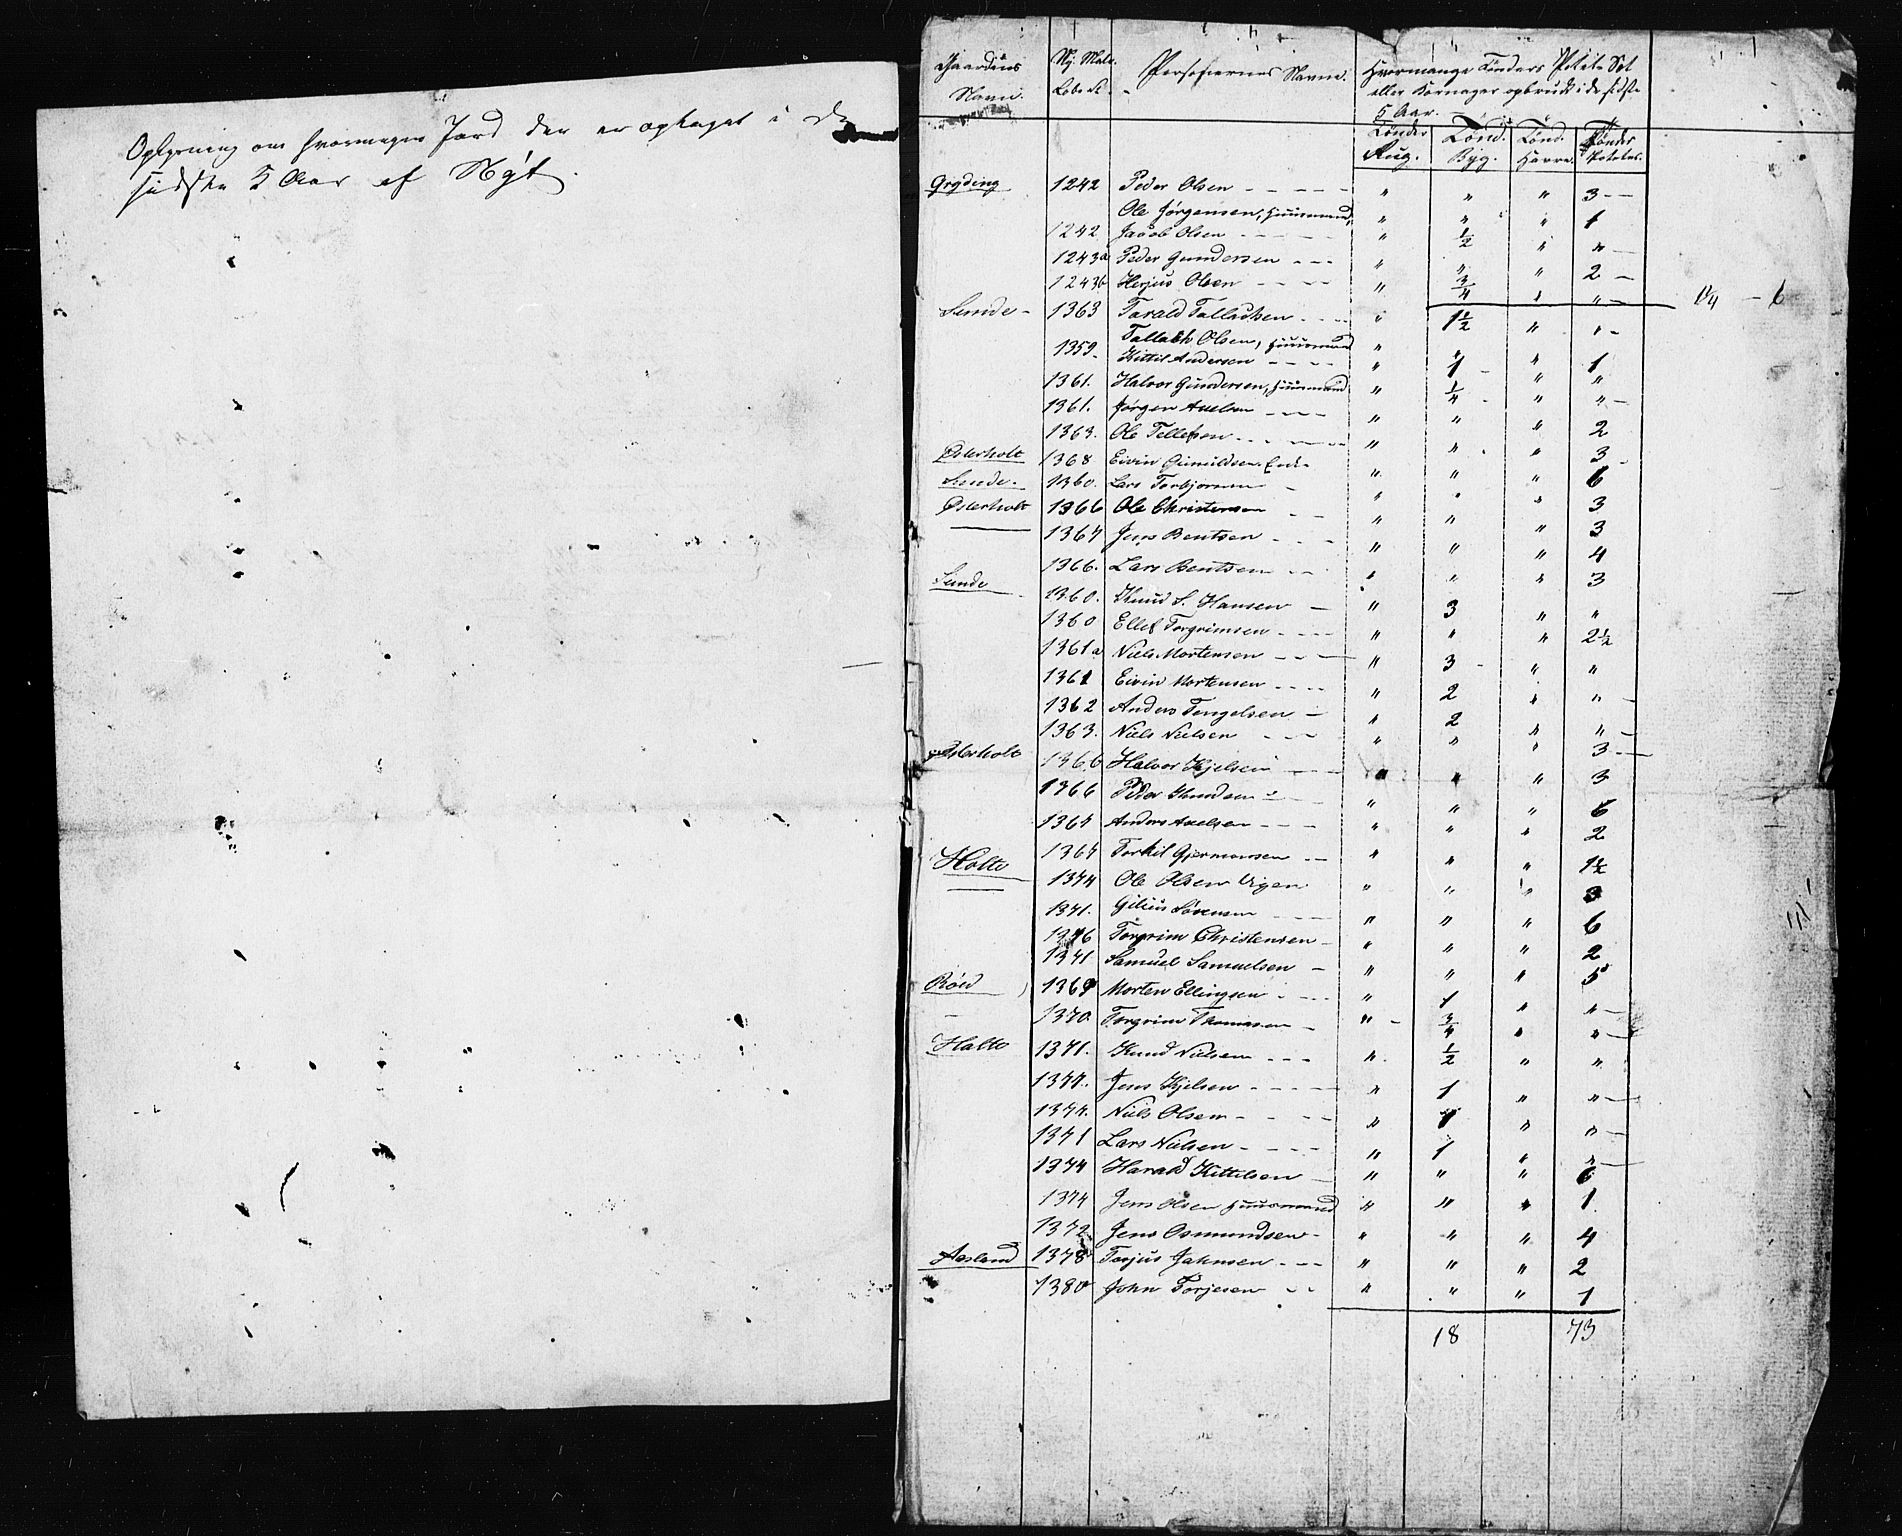 Oplysning om hvormegen Jord der er optaget i de
sidste 5 Aar af Nyt.
Gaardens Navn. Ny Matr. Løbe N. Personernes Navne. Hvormange Tønders Potete Set
eller Kornager opbrudt i de sidste
5 Aar.
Tønder Rug. Tønd. Byg. Tønd. Havre. Tønder Poteter.
Gryding 1242 Peder Olsen - - - - - " " " 3 -
Ole Jørgensen, Huusmand, " " " 1
1242 Jacob Olsen - - - - - " 1/2 " " -
1243a Peder Gundersen - - - " " " 2 -
1243b Herjus Olsen - - - - " 3/4 " " - 1 1/4 - 6
Sunde - 1363 Tarald Tallachsen - - - - " 1 1/2 " " -
Tallach Olsen, Huusmand " " " 1
1359. Kittil Andersen - - - - " 1 - " "
1361. Halvor Gundersen, Huusmand " 1/4 - " " -
1361. Jørgen Axelsen - - - - " " " 2
1363. Ole Tellefsen - - - - - " " " 3 -
Østerholt 1368 Eivin Gunuldsen Enke " " " 6
Sunde - 1360. Lars Torbjørnsen - " " " 3
Østerholt 1366 Ole Christensen - - " " " 3
1367 Jens Bentsen - - - " " " 4
1366. Lars Bentsen - - " " " 3
Sunde 1360. Knud S. Hansen - " 3 " "
1360 Ellef Torgrimsen - - - - " " " 2 1/2
1361a Niels Mortensen - - - " 3 - " "
1361 Eivin Mortensen - - - - " 2 " " -
1362 Anders Tengelsen - " 2 " " -
1363. Niels Nielsen - - - " " " 3 -
Østerholt 1366 Halvor Kjelsen - - - - " " " 3
1366 Peder Knudsen - - " " " 6
1367 Anders Axelsen - - - " " " 2
1367 Torkil Gjermonsen - - " " " 1 1/2
Holte 1374 Ole Olsen Vigen " " " 3
1371. Gilius Sørensen - - - " " " 6
1376 Torgrim Christensen - " " " 2
1371 Samuel Samuelsen - " " " 5
Røed 1369 Morten Ellingsen - - - - " 1 " " -
1370. Torgrim Thomassen - " - 3/4 " " -
Holte 1371. Knud Nielsen - - - " 1/2 " "
1377. Jens Kjelsen - - - - - " 1 " " -
1374. Niels Olsen - - - - " 1 " " -
1371 Lars Nielsen - - - - " 1 " " -
1374 Harald Kittelsen - " " " 6
1374 Jens Olsen Huusmand " " " 1
1372 Jens Osmundsen - " " " 4
Aasland 1378 Torjus Jahnsen - - - " " " 2
1380 John Torjesen - - " " " 1
18 73